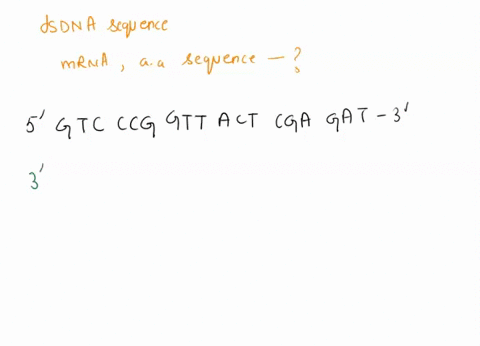 dsDNA sequence
mRNA, a.a sequence — ?
5' GTC CCG GTT ACT CGA GAT - 3'
3'